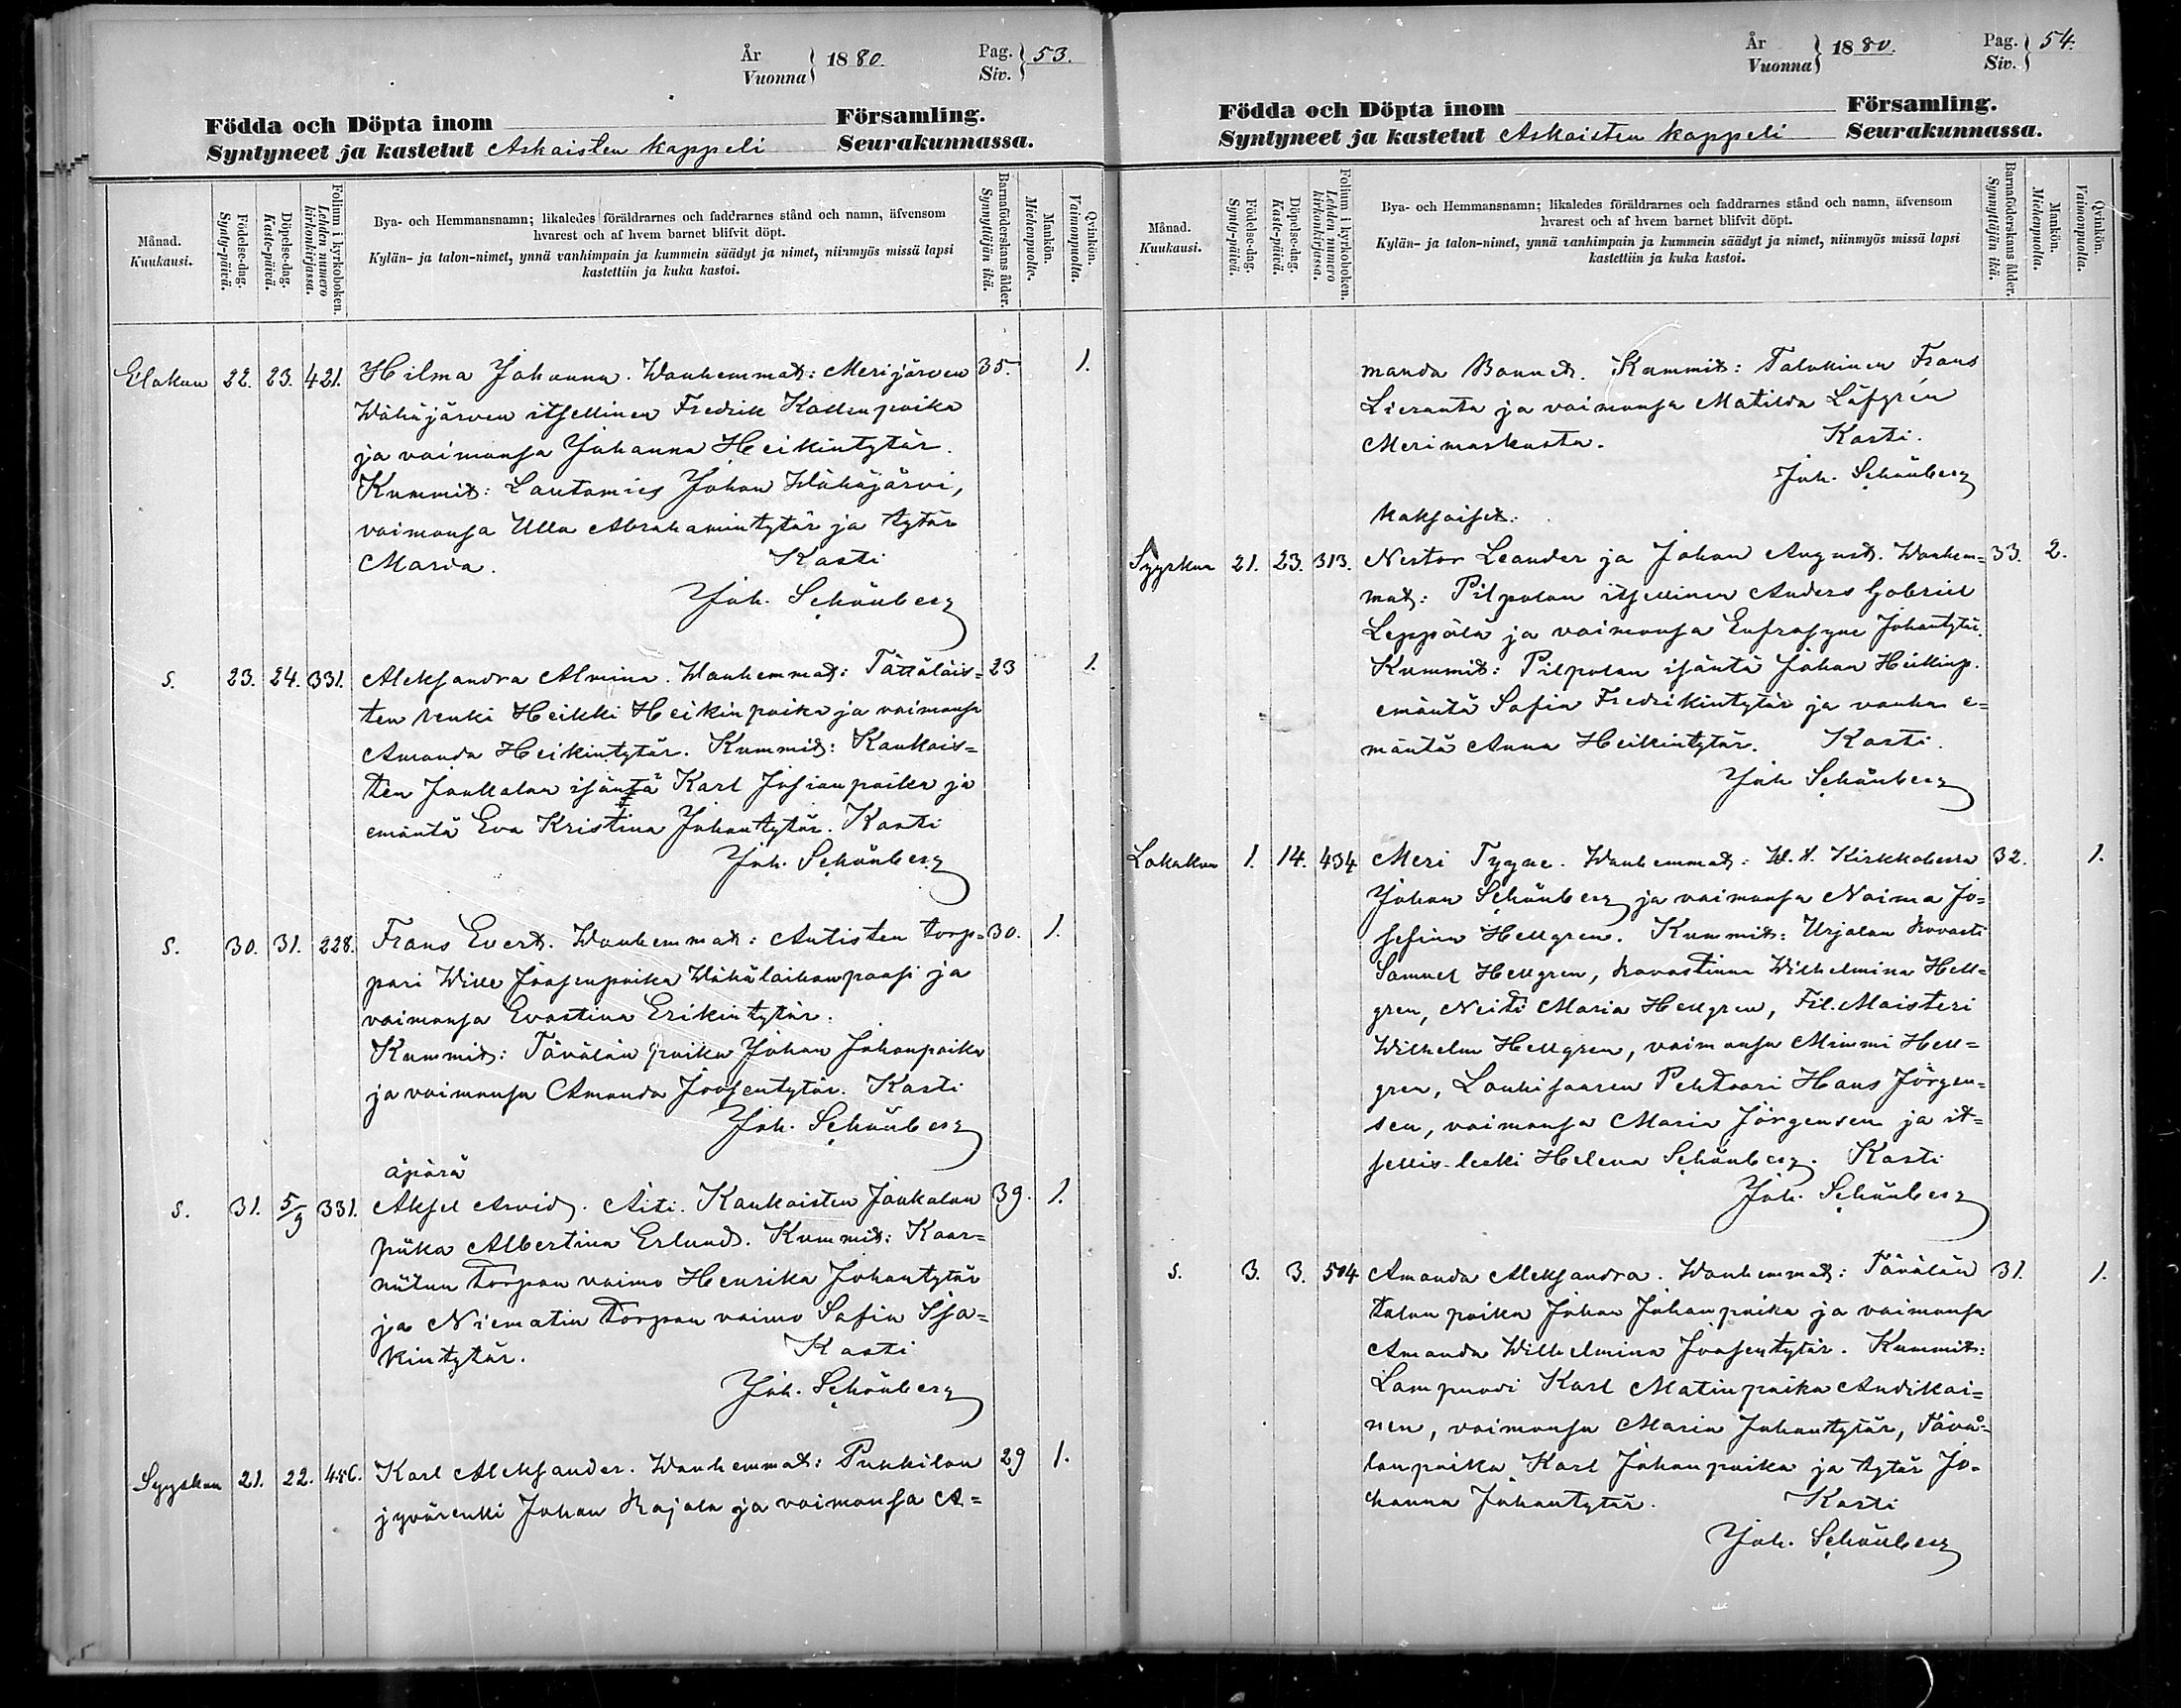 År
Vuonna
1880.
Pag.
Siv.
53.
Födda och Döpta inom Församling.
Syntyneet ja kastetut Askaisten kappeli Seurakunnassa.
Månad.
Kuukausi.
Födelse-dag.
Synty-päivä.
Döpelse-dag.
Kaste-päivä.
Folium i kyrkoboken.
Lehden numero
kirkonkirjassa.
Bya- och Hemmansnamn; likaledes föräldrarnes och faddrarnes stånd och namn, äfvensom
hvarest och af hvem barnet blifvit döpt.
Kylän- ja talon-nimet, ynnä vanhimpain ja kummein säädyt ja nimet, niinmyös missä lapsi
kastettiin ja kuka kastoi.
Barnaföderskans ålder.
Synnyttäjän ikä.
Mankön.
Miehenpuolta.
Qvinkön.
Vaimonpuolta.
Elokuu 22. 23. 421. Hilma Johanna. Wanhemmat: Merijärven 35. 1.
Wähäjärven itsellinen Fredrik Kallenpoika
ja vaimonsa Johanna Heikintytär.
Kummit: Lautamies Johan Wähäjärvi,
vaimonsa Ulla Abrahamintytär ja tytär
Maria. Kasti
Joh. Schönberg
S. 23. 24. 331. Aleksandra Almina. Wanhemmat: Tättäläis= 23 1.
ten renki Heikki Heikinpoika ja vaimonsa
Amanda Heikintytär. Kummit: Kaukois=
ten Jaakolan isäntä Karl Josianpoika ja
emäntä Eva Kristina Johantytär. Kasti
Joh. Schönberg
S. 30. 31. 228. Frans Evert. Wanhemmat: Autisten torp= 30. 1.
pari Wille Joosenpoika Wähälaihonpaasi ja
vaimonsa Evastina Erikintytär.
Kummit: Tävälän poika Johan Johanpoika
ja vaimonsa Amanda Joosentytär. Kasti
Joh. Schönberg
äpärä
S. 31. 5/9 331. Aksel Arvid. Äiti. Kaukoisten Jaakolan 39. 1.
piika Albertina Erlund. Kummit: Kaar=
niitun Torpan vaimo Henrika Johantytär
ja Niemätin Torpan vaimo Sofia Isa=
kintytär. Kasti
Joh. Schönberg
Syyskuu 21. 22. 486. Karl Aleksander. Wanhemmat: Pukkilan 29 1.
jyvärenki Johan Rajala ja vaimonsa A=
År
Vuonna
1880.
Pag.
Siv.
54.
Födda och Döpta inom Församling.
Syntyneet ja kastetut Askaisten kappeli Seurakunnassa.
Månad.
Kuukausi.
Födelse-dag.
Synty-päivä.
Döpelse-dag.
Kaste-päivä.
Folium i kyrkoboken.
Lehden numero
kirkonkirjassa.
Bya- och Hemmansnamn; likaledes föräldrarnes och faddrarnes stånd och namn, äfvensom
hvarest och af hvem barnet blifvit döpt.
Kylän- ja talon-nimet, ynnä vanhimpain ja kummein säädyt ja nimet, niinmyös missä lapsi
kastettiin ja kuka kastoi.
Barnaföderskans ålder.
Synnyttäjän ikä.
Mankön.
Miehenpuolta.
Qvinkön.
Vaimonpuolta.
manda Bonnet. Kummit: Talokinen Frans
Lieranta ja vaimonsa Matilda Löfgrén
Merimaskusta. Kasti.
Joh. Schönberg
kaksoiset.
Syyskuu 21. 23. 313. Nestor Leander ja Johan August. Wanhem= 33. 2.
mat: Pilpolan itsellinen Anders Gabriel
Leppälä ja vaimonsa Eufrosyne Johantytär.
Kummit: Pilpolan isäntä Johan Heikinp.
emäntä Sofia Fredrikintytär ja vanha e=
mäntä Anna Heikintytär. Kasti.
Joh Schönberg
Lokakuu 1. 14. 434 Meri Tyyne. Wanhemmat: W. t. Kirkkoherra 32. 1.
Johan Schönberg ja vaimonsa Naima Jo=
sefina Hellgren. Kummit: Urjalan Rovasti
Samuel Hellgren, Rovastinna Wilhelmina Hell=
gren, Neiti Maria Hellgren, Fil. Maisteri
Wilhelm Hellgren, vaimonsa Mimmi Hell=
gren, Louhisaaren Pehtoori Hans Jörgen=
sen, vaimonsa Maria Jörgensen ja it=
sellis-leski Helena Schönberg. Kasti
Joh. Schönberg
S. 3. 3. 504 Amanda Aleksandra. Wanhemmat: Tävälän 31. 1.
talon poika Johan Johanpoika ja vaimonsa
Amanda Wilhelmina Joosentytär. Kummit:
Lampuodi Karl Matinpoika Andikai=
nen, vaimonsa Maria Johantytär, Tävä=
lanpoika Karl Johanpoika ja tytär Jo=
hanna Johantytär. Kasti
Joh. Schönberg